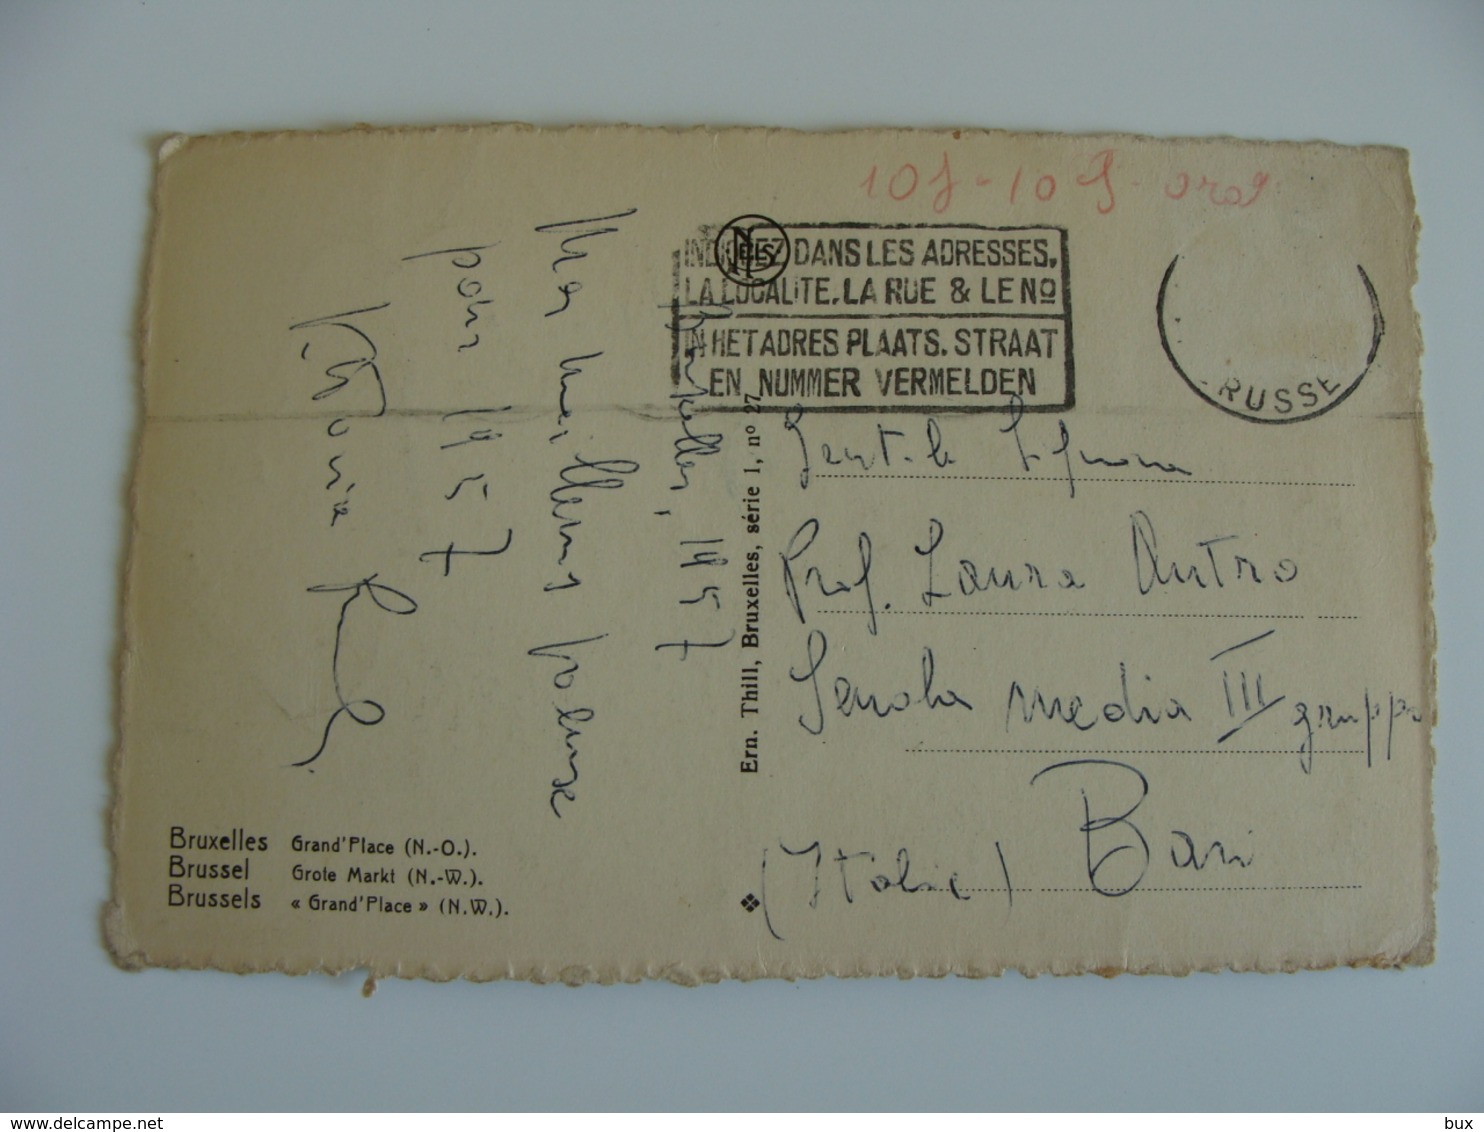 108-109-
NELS
INDIQUEZ DANS LES ADRESSES,
LA LOCALITE. LA RUE & LE Nº
IN HET ADRES PLAATS. STRAAT
EN NUMMER VERMELDEN
RUSSE
Bruxelles, 1957
Mes meilleurs
pour 1957
Gentile Signora
Prof. Laura Antro
Scuola media III gruppo
Bari
(Italie)
Ern. Thill, Bruxelles, série 1, nº 27
Bruxelles Grand'Place (N.-O.).
Brussel Grote Markt (N.-W.).
Brussels « Grand'Place » (N.W.).
delcampe.net
bux